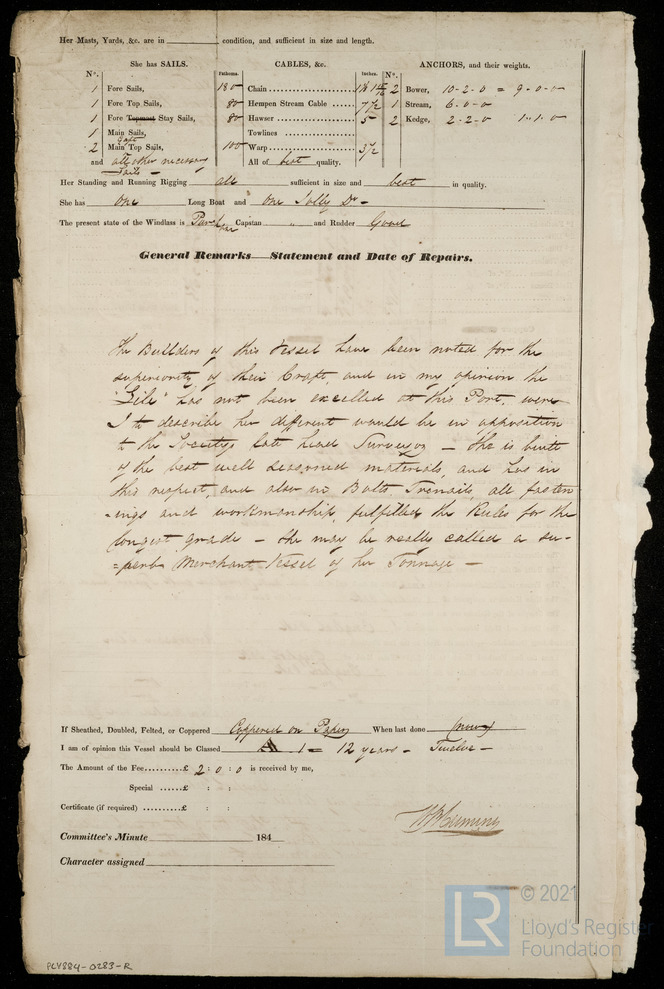 Her Masts, Yards, &c. are in condition, and sufficient in size and length.
She has SAILS. Fathoms. CABLES, &c. Inches. ANCHORS, and their weights.
N°. N°.
1 Fore Sails, 180 Chain 2 Bower, 10-2-0 = 9-0-0
1 Fore Top Sails, 80 Hempen Stream Cable 7½ 1 Stream, 6-0-0
1 Fore Topmost Stay Sails, 80 Hawser 5 2 Kedge, 2-2-0 1-1-0
1 Main Sails, Towlines
2 Main Gaff Top Sails, 100 Warp 3½
and all other necessary All of best quality.
Sails
Her Standing and Running Rigging all sufficient in size and best in quality.
She has one Long Boat and one Jolly Do -
The present state of the Windlass is Capstan " and Rudder Good
General Remarks Statement and Date of Repairs.
The Builders of this Vessel have been noted for the
superiority of their Craft, and in my opinion the
has not been excelled at this Port, were
I to describe her different would be in opposition
to the Society's late head Surveyor - She is built
of the best well seasoned materials, and has in
this respect, and also in Bolts, Trenails, all fasten
-ings and workmanship, fulfilled the Rules for the
longest grade - She may be really called a su-
=perb Merchant Vessel of her Tonnage -
If Sheathed, Doubled, Felted, or Coppered Coppered on Paper When last done (now)
I am of opinion this Vessel should be Classed A 1 = 12 years - Twelve -
The Amount of the Fee.........£ 2 : 0 : 0 is received by me,
Special ......£ : :
Certificate (if required) ..........£ : :
Committee's Minute 184
Character assigned
© 2021
LR Lloyd's Register
Foundation
PLY884-0283-R